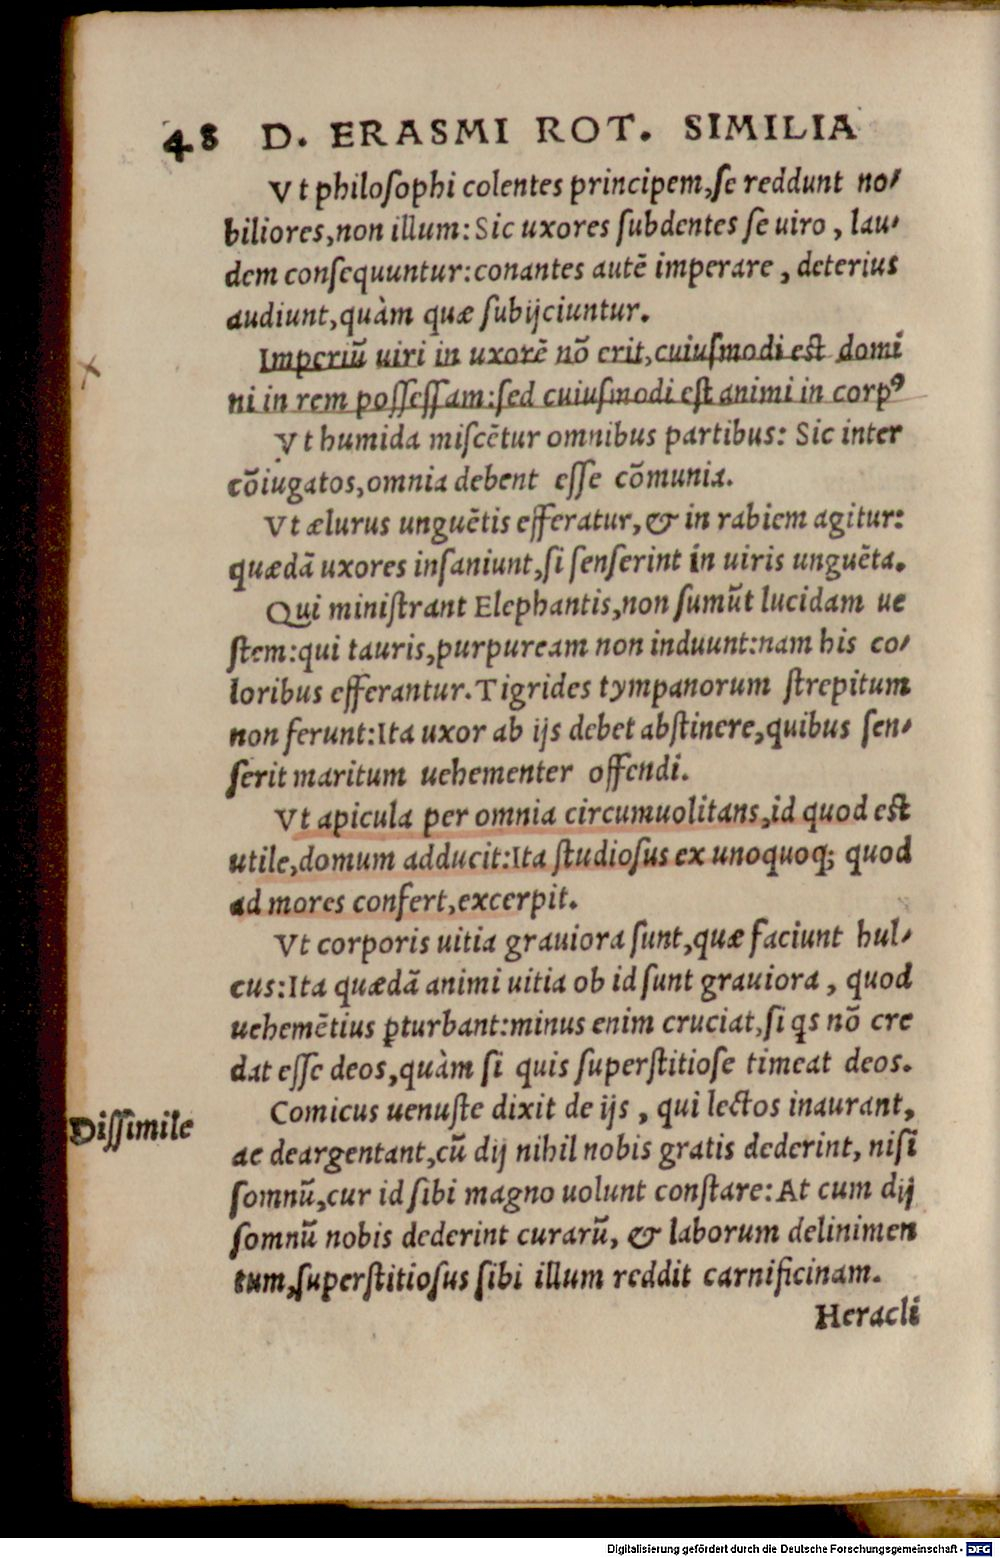 48 D. ERASMI ROT. SIMILIA
Vt philoſophi colentes principem,ſe reddunt no-
biliores,non illum: Sic uxores ſubdentes ſe uiro , lau-
dem conſequuntur:conantes autẽ imperare , deterius
audiunt,quàm quæ ſubijciuntur.
Imperiũ uiri in uxorẽ nõ erit,cuiuſmodi est domi
ni in rem poſſeſſam:ſed cuiuſmodi eſt animi in corpꝰ
Vt humida miſcẽtur omnibus partibus: Sic inter
cõiugatos,omnia debent eſſe cõmunia.
Vt ælurus unguẽtis efferatur,& in rabiem agitur:
quædã uxores inſaniunt,ſi ſenſerint in uiris unguẽta.
Qui miniſtrant Elephantis,non ſumũt lucidam ue
ſtem:qui tauris,purpuream non induunt:nam his co-
loribus efferantur.Tigrides tympanorum ſtrepitum
non ferunt:Ita uxor ab ijs debet abſtinere,quibus ſen-
ſerit maritum uehementer offendi.
Vt apicula per omnia circumuolitans,id quod est
utile,domum adducit:Ita ſtudioſus ex unoquoq; quod
ad mores confert,excerpit.
Vt corporis uitia grauiora ſunt,quæ faciunt hul-
cus:Ita quædã animi uitia ob id ſunt grauiora , quod
uehemẽtius ꝑturbant:minus enim cruciat,ſi qs nõ cre
dat eſſe deos,quàm ſi quis ſuperſtitioſe timeat deos.
Dißimile
Comicus uenuſte dixit de ijs , qui lectos inaurant,
ac deargentant,cũ dij nihil nobis gratis dederint, niſi
ſomnũ,cur id ſibi magno uolunt conſtare: At cum dij
ſomnũ nobis dederint curarũ, & laborum delinimen
tum,ſuperſtitioſus ſibi illum reddit carnificinam.
Heracli
Digitalisierung gefördert durch die Deutsche Forschungsgemeinschaft - DFG